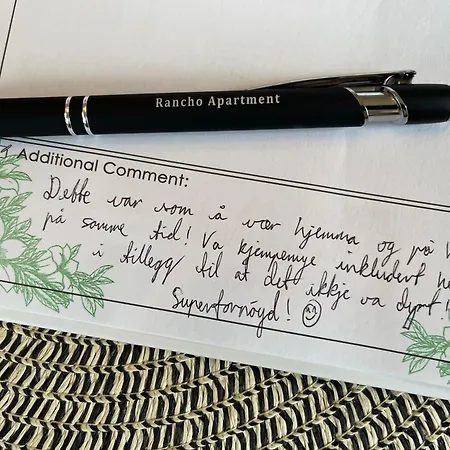 Rancho Apartment
Additional Comment:
Dette var som å vær hjemma og på
på samme tid! Va kjempemye inkludert
i tillegg til at det ikkje va dyrt!
Superfornøyd!